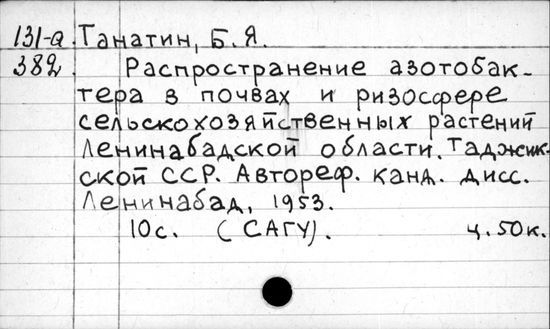 131-а Танатин, Б. Я.
382 Распространение азотобак-
тера в почвах и ризосфере
сельскохозяйственных растений
Ленинабадской области. Таджик-
ской ССР. Автореф. канд. дисс.
Ленинабад, 1953.
10с. (САГУ). ц. 50к.